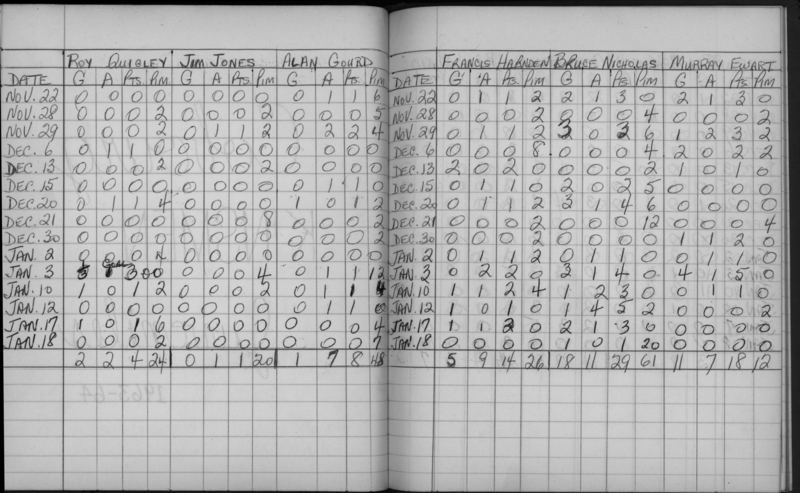 ROY QUIGLEY JIM JONES ALAN GOURD
DATE G A Pts. Pim G A Pts. Pim G A Pts. Pim
NOV. 22 0 0 0 0 0 0 0 0 0 1 1 6
NOV. 28 0 0 0 2 0 0 0 2 0 0 0 5
NOV. 29 0 0 0 2 0 1 1 2 0 2 2 4
DEC. 6 0 1 1 0 0 0 0 0 0 0 0 0
DEC. 13 0 0 0 2 0 0 0 2 0 0 0 0
DEC. 15 0 0 0 0 0 0 0 0 0 1 1 0
DEC. 20 0 1 1 4 0 0 0 0 1 0 1 2
DEC. 21 0 0 0 0 0 0 0 8 0 0 0 2
DEC. 30 0 0 0 0 0 0 0 0 0 0 0 2
JAN. 2 0 0 0 0 0 0 0 0 0 0 0
JAN. 3 0 0 0 0 4 0 1 1 12
JAN. 10 1 0 1 2 0 0 0 2 0 1 1 4
JAN. 12 0 0 0 0 0 0 0 0 0 1 1 0
JAN. 17 1 0 1 6 0 0 0 0 0 0 0 4
JAN. 18 0 0 0 2 0 0 0 0 0 0 0 7
2 2 4 24 0 1 1 20 1 7 8 48
FRANCIS HARNDEN BRUCE NICHOLAS MURRAY EWART
DATE G A Pts. Pim G A Pts Pim G A Pts Pim
NOV. 22 0 1 1 2 2 1 3 0 2 1 3 0
NOV. 28 0 0 0 2 0 0 0 4 0 0 0 2
NOV. 29 0 1 1 2 3 0 3 6 1 2 3 2
DEC. 6 0 0 0 8 0 0 0 4 2 0 2 2
DEC. 13 2 0 2 0 0 0 0 2 1 0 1 0
DEC. 15 0 1 1 0 2 0 2 5 0 0 0 0
DEC. 20 0 1 1 2 3 1 4 6 0 0 0 0
DEC. 21 0 0 0 2 0 0 0 12 0 0 0 4
DEC. 30 0 0 0 2 0 0 0 0 1 1 2 0
JAN. 2 0 1 1 2 0 1 1 0 0 1 1 0
JAN. 3 0 2 2 0 3 1 4 0 4 1 5 0
JAN. 10 1 1 2 4 1 2 3 0 0 1 1 0
JAN. 12 1 0 1 0 1 4 5 2 0 0 0 2
JAN. 17 1 1 2 0 2 1 3 0 0 0 0 0
JAN. 18 0 0 0 0 1 0 1 20 0 0 0 0
5 9 14 26 18 11 29 61 11 7 18 12